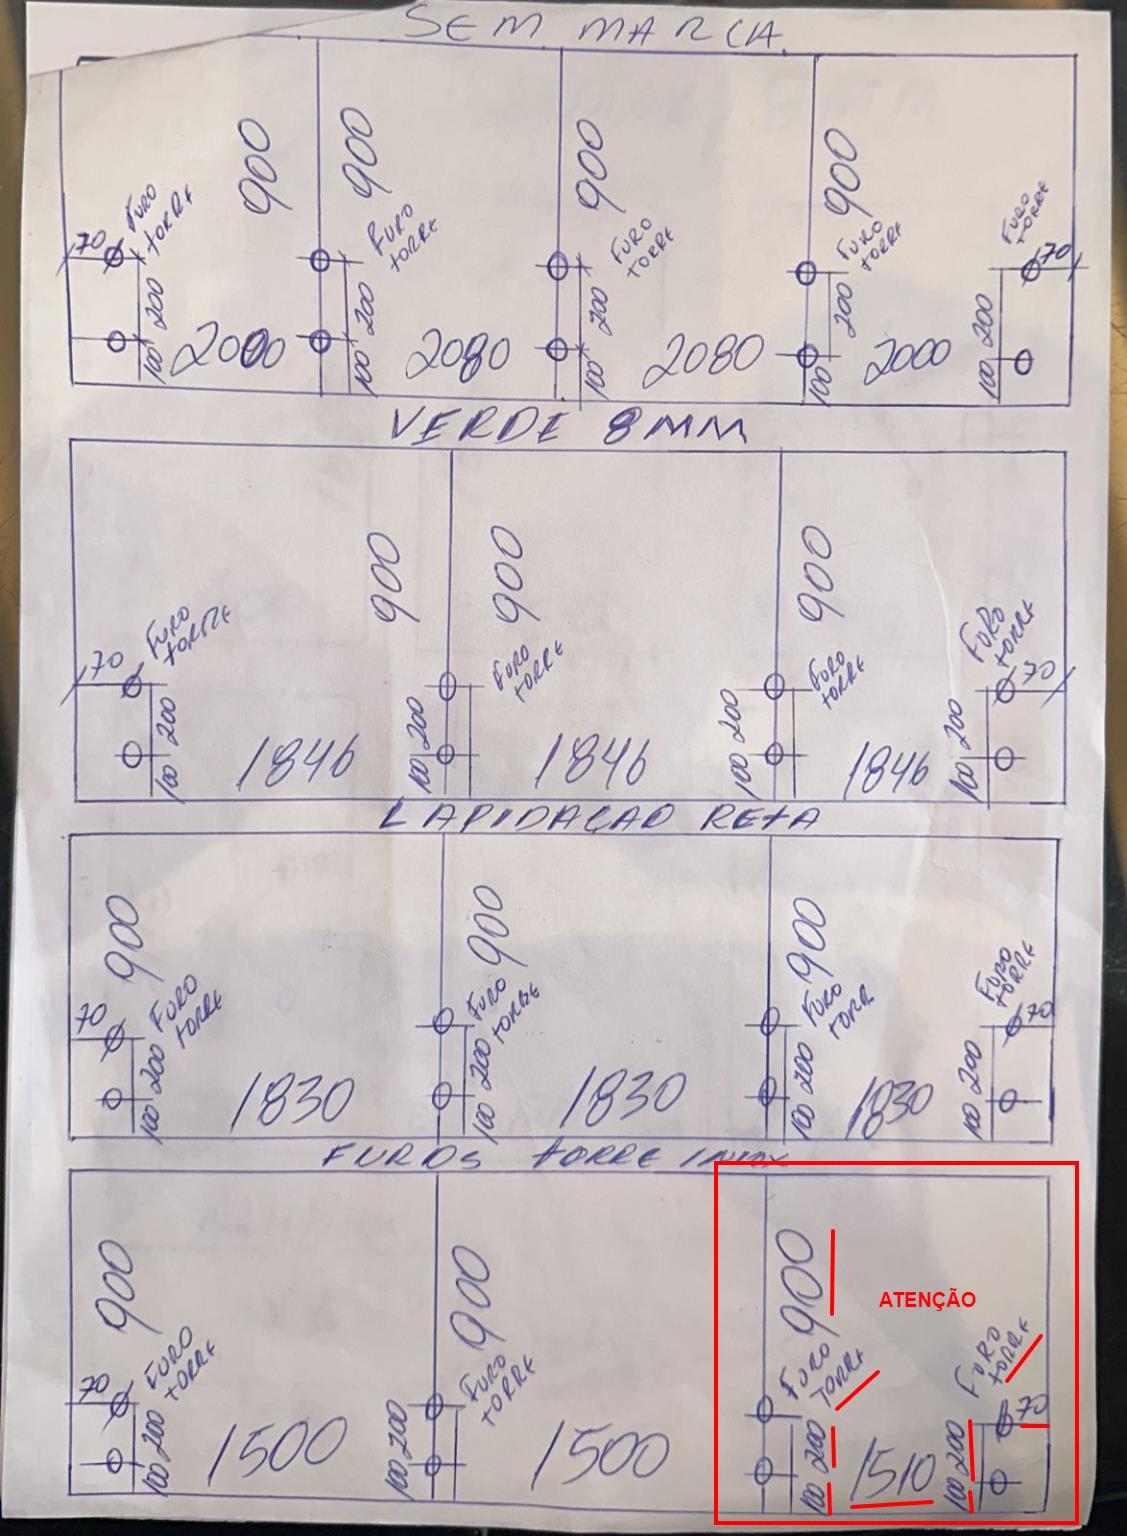 SEM MARCA.
900
900
900
900
70
FURO
TORRE
FURO
TORRE
FURO
TORRE
FURO
TORRE
FURO
TORRE
70
200
100
2000
200
100
2080
200
100
2080
200
100
2000
200
100
VERDE 8MM
900
900
900
70
FURO
TORRE
FURO
TORRE
FURO
TORRE
FURO
TORRE
70
200
100
1846
200
100
1846
200
100
1846
200
100
LAPIDAÇAO RETA
900
900
900
70
FURO
TORRE
FURO
TORRE
FURO
TORR
FURO
TORRE
70
200
100
1830
200
100
1830
200
100
1830
200
100
FUROS TORRE INOX
900
900
900
ATENÇÃO
70
FURO
TORRE
FURO
TORRE
FURO
TORRE
FURO
TORRE
70
200
100
1500
200
100
1500
200
100
1510
200
100